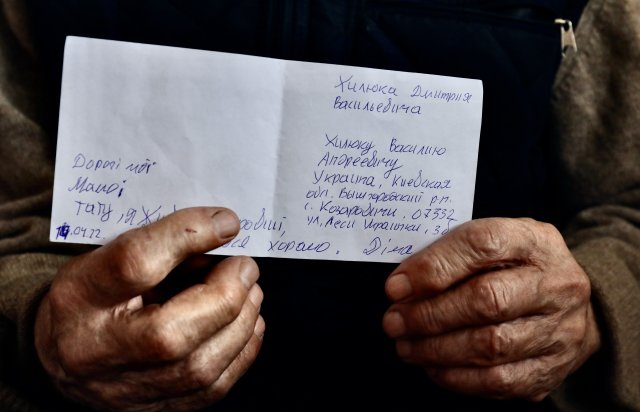 Хилюка Дмитрия
Васильевича
Хилюку Василию
Андреевичу
Украина, Киевская
обл. Вышгородский р.н.
с. Козаровичи, 07332
ул, Леси Украинки, 3б
Дорогі мої
Мамо і
тату, я
.04.22. все хорошо. Діма